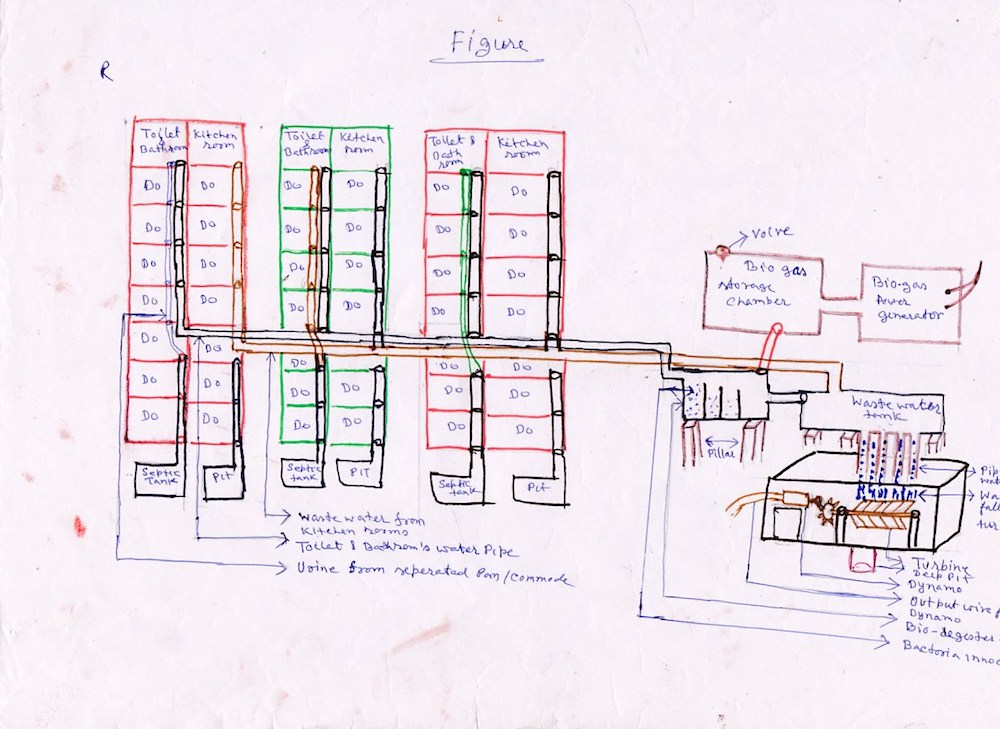 Figure
R
Toilet &
Bathroom
Kitchen
room
Do
Do
Do
Do
Do
Do
Do
Do
Do
Do
Do
Do
Do
Septic
Tank
Pit
Toilet &
Bathroom
Ketchen
room
Do
Do
Do
Do
Do
Do
Do
Do
Do
Do
Do
Do
Do
Do
Septic
Tank
PIT
Toilet &
Bath
room
Ketchen
room
Do
Do
Do
Do
Do
Do
Do
Do
Do
Do
Do
Do
Do
Do
Septic
tank
Pit
Volve
Bio gas
storage
chamber
Bio-gas
Power
generator
Waste water
tank
Pillar
Pip
Wat
Wa
fall
tur
Waste water from
Kitchen rooms
Toilet & Bathrom's water Pipe
Urine from seperated Pan/commode
Turbine
Deep Pit
Dynamo
Output wire f
Dynamo
Bio-degester
Bactoria innoc